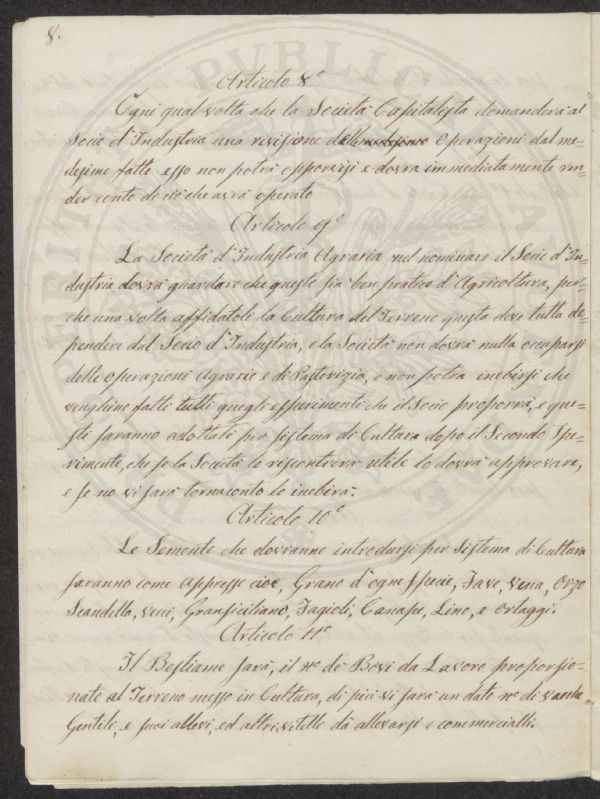 8.
Articolo 8°
Ogni qual volta che la Società Capitalista domanderà al
Socio d'Industria una revisione delle medesime Operazioni dal me-
desimo fatte esso non potrà opporsi e dovrà immediatamente ren-
der conto di ciò che avrà operato
Articolo 9°
La Società d'Industria Agraria nel nominare il Socio d'In-
dustria dovrà guardare che questo sia ben pratico d'Agricoltura, per-
che una volta affidatole la Cultura del Terreno questa deve tutta di-
pendere dal Socio d'Industria, e la Società non dovrà nulla occuparsi
delle Operazioni Agrarie e di Pastorizia, e non potrà inebirsi che
venghino fatte tutti quegli esperimenti che il Socio proporrà, e que-
sti saranno adottati per sistema di Cultura dopo il Secondo Spe-
rimento, che se la Società lo riscontrerà utile lo dovrà approvare,
e se no vi sarà tornaconto lo inebirà.
Articolo 10°
Le Semente che dovranno introdursi per Sistema di Cultura
saranno come appresso cioè, Grano d'ogni specie, Fave, Vena, Orzo
Scandella, veci, Gransiciliano, Fagioli, Canape, Lino, e Ortaggi.
Articolo 11°
Il Bestiame sarà, il n° de Bovi da Lavoro proporsio-
nate al Terreno messo in Cultura, di più vi sarà un dato n° di
Gentili, e suoi allevi, ed altri vitelli da allevarsi e commerciali.
PVBLICA